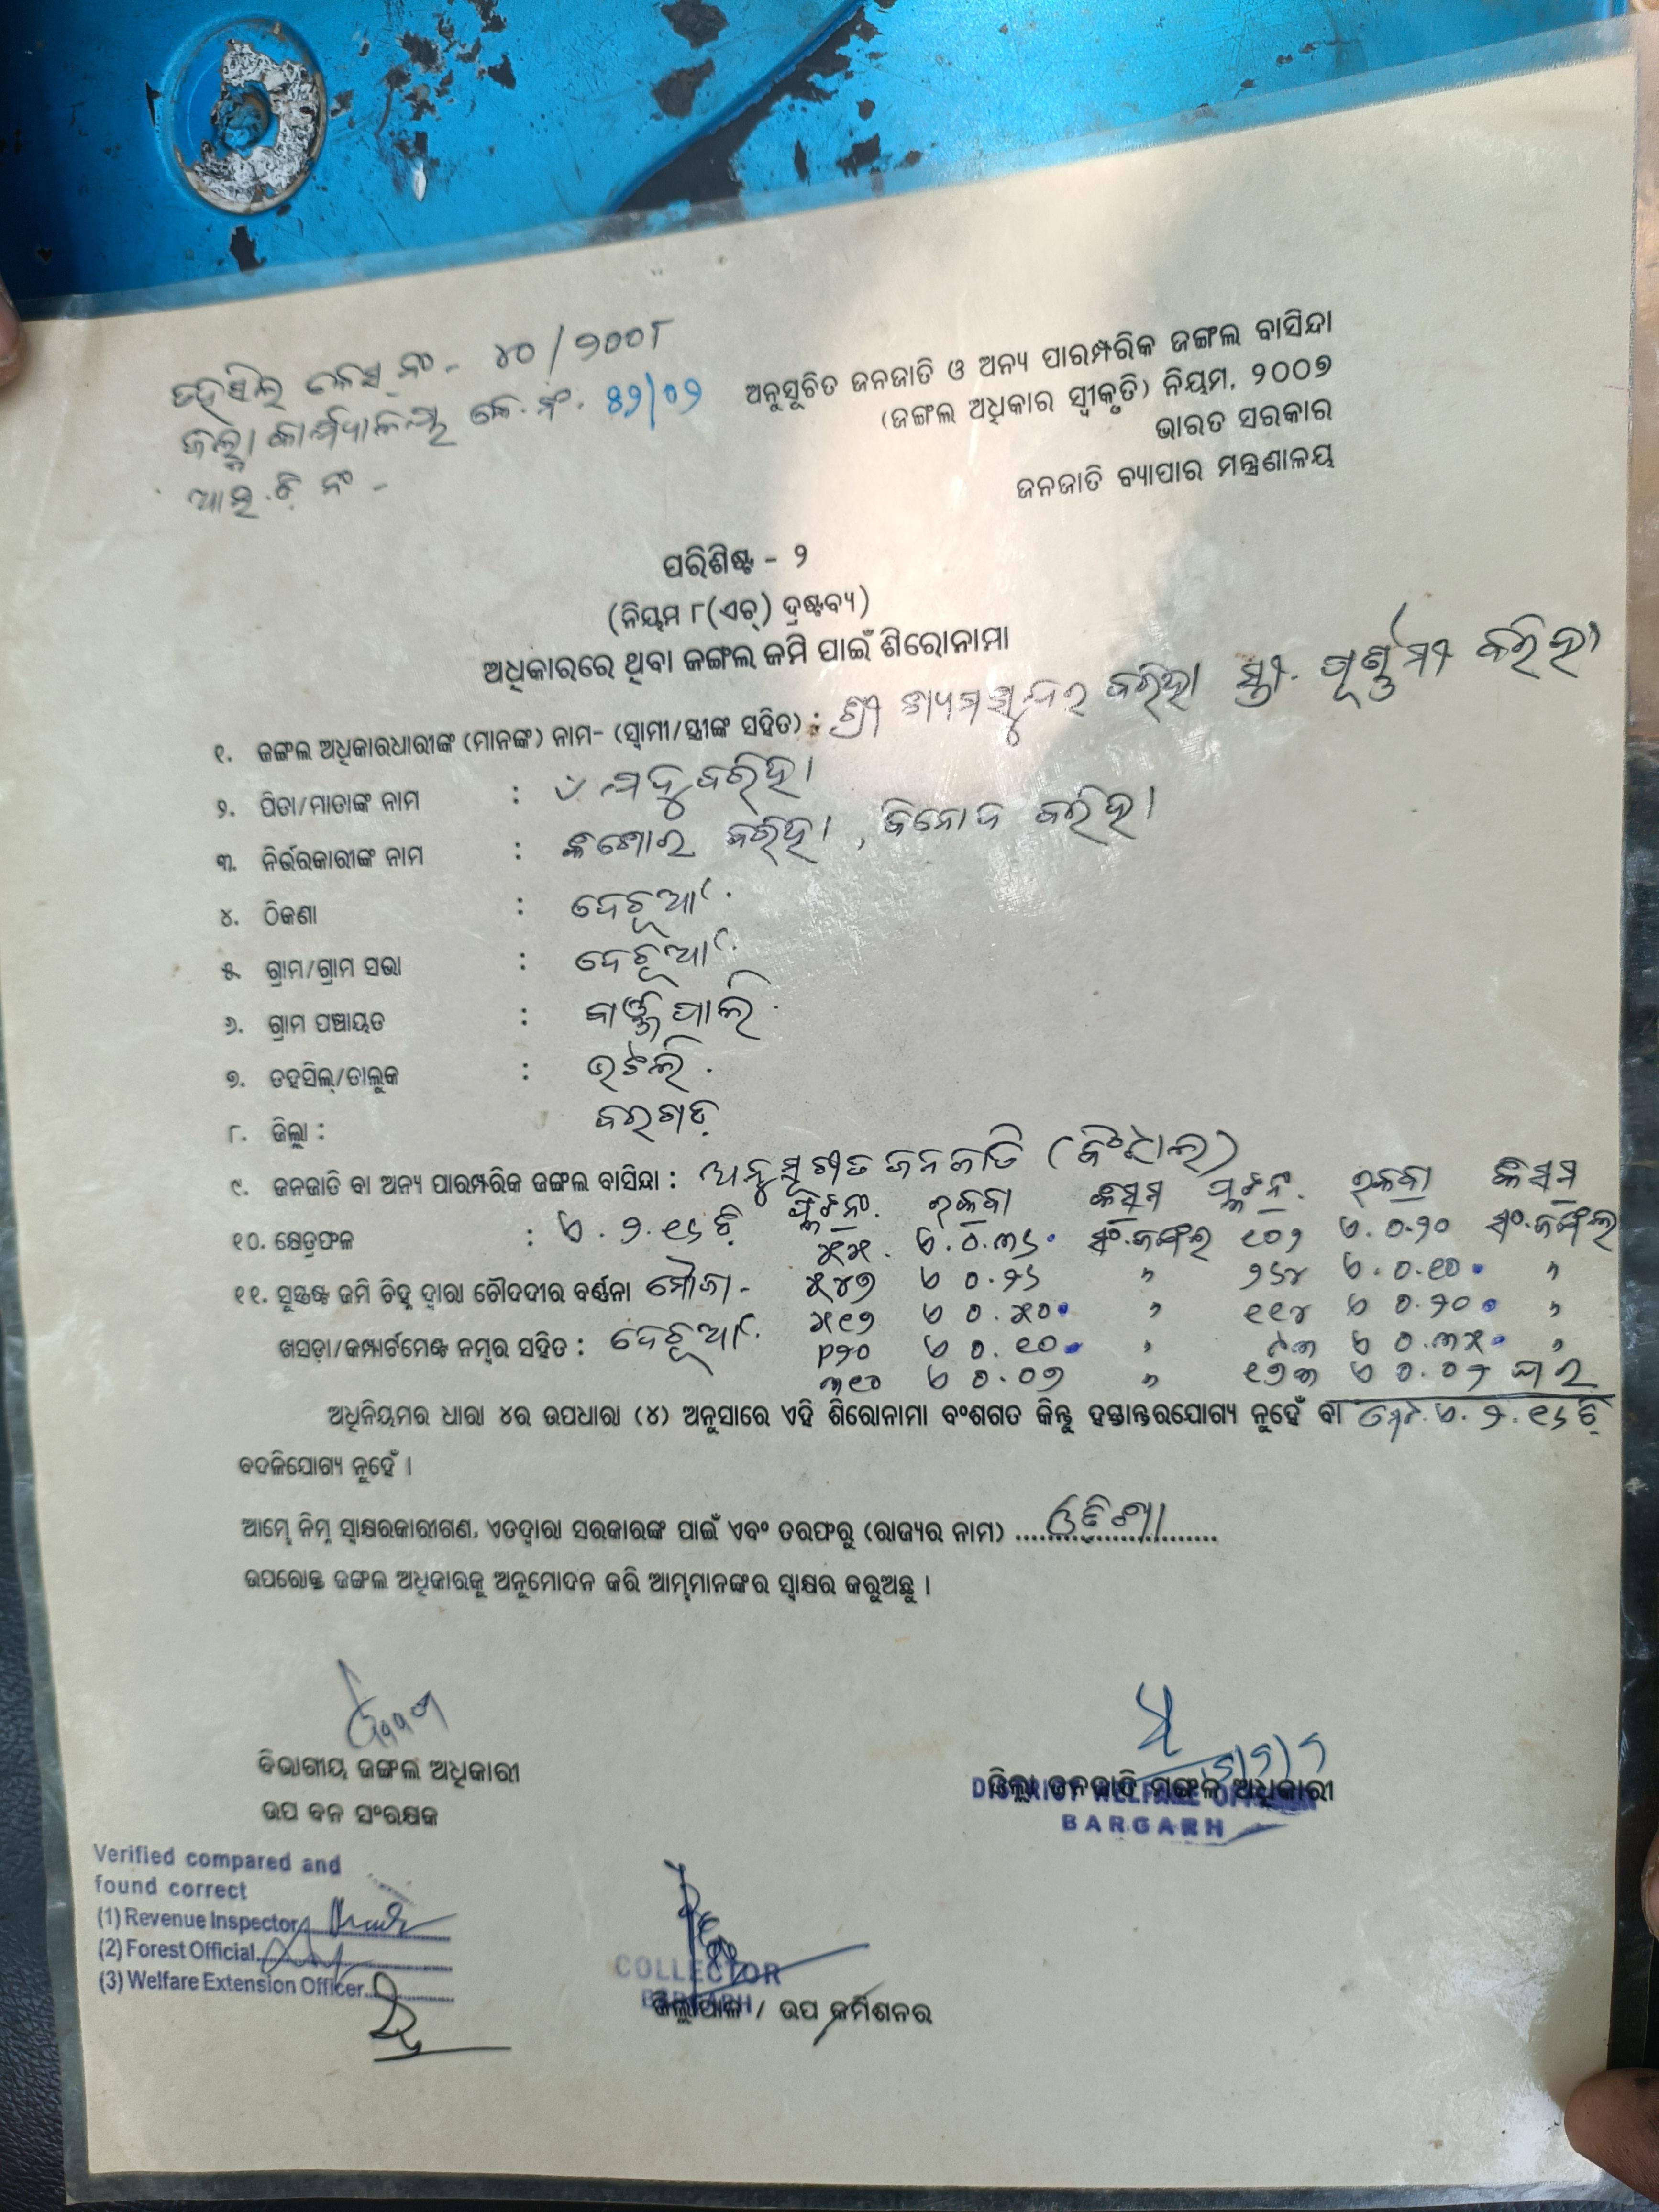 ତହସିଲ କେସ୍ ନଂ - ୪୦/୨୦୦୮
ଜିଲ୍ଲା କାର୍ଯ୍ୟାଳୟ କେ. ନଂ.
ଅନୁସୂଚିତ ଜନଜାତି ଓ ଅନ୍ୟ ପାରମ୍ପରିକ ଜଙ୍ଗଲ ବାସିନ୍ଦା
(ଜଙ୍ଗଲ ଅଧିକାର ସ୍ୱୀକୃତି) ନିୟମ, ୨୦୦୭
ଭାରତ ସରକାର
ଜନଜାତି ବ୍ୟାପାର ମନ୍ତ୍ରଣାଳୟ
ପରିଶିଷ୍ଟ - ୨
(ନିୟମ ୮(ଏଚ୍) ଦ୍ରଷ୍ଟବ୍ୟ)
ଅଧିକାରରେ ଥିବା ଜଙ୍ଗଲ ଜମି ପାଇଁ ଶିରୋନାମା
୧. ଜଙ୍ଗଲ ଅଧିକାରଧାରୀଙ୍କ (ମାନଙ୍କ) ନାମ- (ସ୍ୱାମୀ/ସ୍ତ୍ରୀଙ୍କ ସହିତ) : ଶ୍ରୀ ଶ୍ୟାମସୁନ୍ଦର ବରିହା ସ୍ତ୍ରୀ. ପୂର୍ଣ୍ଣମୀ ବରିହା
୨. ପିତା/ମାତାଙ୍କ ନାମ : ବରିହା
୩. ନିର୍ଭରକାରୀଙ୍କ ନାମ : କିଶୋର ବରିହା, ବିନୋଦ ବରିହା
୪. ଠିକଣା : ଦେଚୂଆଁ.
୫. ଗ୍ରାମ/ଗ୍ରାମ ସଭା : ଦେଚୂଆଁ.
୬. ଗ୍ରାମ ପଞ୍ଚାୟତ :
୭. ତହସିଲ୍/ତାଲୁକ : ଭଟଲି.
୮. ଜିଲ୍ଲା : ବରଗଡ଼
୯. ଜନଜାତି ବା ଅନ୍ୟ ପାରମ୍ପରିକ ଜଙ୍ଗଲ ବାସିନ୍ଦା : ଅନୁସୂଚୀତ ଜନଜାତି (ବିଂଝାଲ)
ପ୍ଲଟ ନଂ. ରକବା କିସମ ପ୍ଲଟ ନଂ. ରକବା କିସମ
୧୦. କ୍ଷେତ୍ରଫଳ : ଏ. ୨.୧୬ ଡି. ୫୫. ଏ.୦.୩୬ ସଂ.ଜଙ୍ଗଲ ୧୦୨ ଏ.୦.୨୦ ସଂ.ଜଙ୍ଗଲ
୧୧. ସୁସ୍ପଷ୍ଟ ଜମି ଚିହ୍ନ ଦ୍ୱାରା ଚୌଦଦୀର ବର୍ଣ୍ଣନା ମୌଜା - ୫୪୭ ଏ ୦.୨୬ " ୨୬୪ ଏ.୦.୧୦ "
୫୧୭ ଏ ୦.୫୦ " ୧୧୪ ଏ ୦.୨୦ "
ଖସଡ଼ା/କମ୍ପାର୍ଟମେଣ୍ଟ ନମ୍ବର ସହିତ : ଦେଚୂଆଁ. ଏ ୦.୧୦ " ଏ ୦.୩୫ "
୩୧୦ ଏ ୦.୦୭ " ୧୭୩ ଏ ୦.୦୨ ଘର
ଅଧିନିୟମର ଧାରା ୪ର ଉପଧାରା (୪) ଅନୁସାରେ ଏହି ଶିରୋନାମା ବଂଶଗତ କିନ୍ତୁ ହସ୍ତାନ୍ତରଯୋଗ୍ୟ ନୁହେଁ ବା ଏ.୨.୧୬ ଡି.
ବଦଳିଯୋଗ୍ୟ ନୁହେଁ ।
ଆମ୍ଭେ ନିମ୍ନ ସ୍ୱାକ୍ଷରକାରୀଗଣ, ଏତଦ୍ଦ୍ୱାରା ସରକାରଙ୍କ ପାଇଁ ଏବଂ ତରଫରୁ (ରାଜ୍ୟର ନାମ) ଓଡିଶା
ଉପରୋକ୍ତ ଜଙ୍ଗଲ ଅଧିକାରକୁ ଅନୁମୋଦନ କରି ଆମ୍ଭମାନଙ୍କର ସ୍ୱାକ୍ଷର କରୁଅଛୁ ।
ବିଭାଗୀୟ ଜଙ୍ଗଲ ଅଧିକାରୀ
ଉପ ବନ ସଂରକ୍ଷକ
ଜିଲ୍ଲା ଜନଜାତି ମଙ୍ଗଳ ଅଧିକାରୀ
DISTRICT WELFARE OFFICER
BARGARH
Verified compared and
found correct
(1) Revenue Inspector
(2) Forest Official
(3) Welfare Extension Officer
COLLECTOR
BARGARH
ଜିଲ୍ଲାପାଳ / ଉପ କମିଶନର